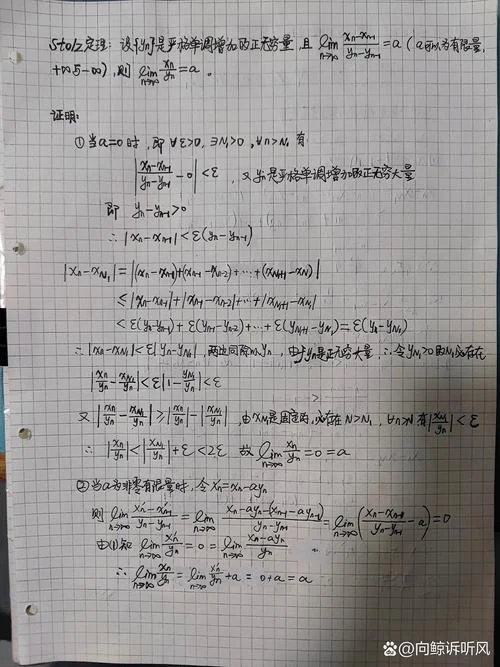 Stolz定理：设{yn}是严格单调增加的正无穷量，且 lim n→∞ (xn-xn-1)/(yn-yn-1) = a（a可以为有限量，
+∞与-∞），则 lim n→∞ xn/yn = a。
证明：
①当a=0时，即∀ε>0，∃N1>0，∀n>N1 有
|(xn-xn-1)/(yn-yn-1) - 0| < ε，又yn是严格单调增加的正无穷大量
即 yn-yn-1>0
∴ |xn-xn-1| < ε(yn-yn-1)
|xn-xN1| = |(xn-xn-1)+(xn-1-xn-2)+…+(xN1+1-xN1)|
≤ |xn-xn-1|+|xn-1-xn-2|+…+|xN1+1-xN1|
< ε(yn-yn-1)+ε(yn-1-yn-2)+…+ε(yN1+1-yN1) = ε(yn-yN1)
∴ |xn-xN1| < ε|yn-yN1|，两边同除以yn，由于yn是正无穷大量，∴令yN1>0的N1必存在
|xn/yn - xN1/yn| < ε|1 - yN1/yn| < ε
又 |xn/yn - xN1/yn| ≥ |xn/yn| - |xN1/yn|，由xN1是固定的，必存在N>N1，∀n>N 有 |xN1/yn| < ε
∴ |xn/yn| < |xN1/yn| + ε < 2ε 故 lim n→∞ xn/yn = 0 = a
②当a为非零有限量时，令x'n=xn-ayn
则 lim n→∞ (x'n-x'n-1)/(yn-yn-1) = lim n→∞ (xn-ayn-(xn-1-ayn-1))/(yn-yn-1) = lim n→∞ ((xn-xn-1)/(yn-yn-1) - a) = 0
由(1)知 lim n→∞ x'n/yn = 0 = lim n→∞ (xn-ayn)/yn
∴ lim n→∞ xn/yn = lim n→∞ x'n/yn + a = 0+a = a
@向鲸诉听风